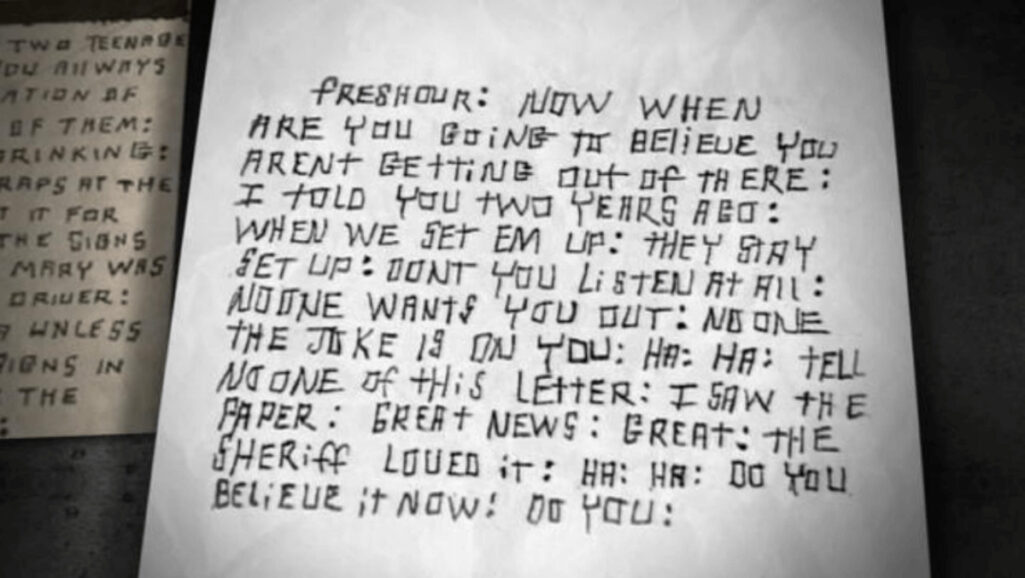 TWO TEENAGE
YOU AllWAYS
ATION OF
OF THEM:
DRINKING:
RAPS AT THE
T IT FOR
THE SIGNS
MARY WAS
DRIVER:
UNLESS
SIGNS IN
THE
FRESHOUR: NOW WHEN
ARE YOU GOiNG TO BELiEVE YOU
ARENt GEtTiNG OUt Of tHERE:
I tOLD YOU tWO YEARS AGO:
WHEN WE SET EM UP: tHEY StAY
SET UP: DONT YOU LiSTEN At All:
NOONE WANtS YOU OUT: NOONE
tHE JOKE IS ON YOU: HA: HA: tELL
NOONE Of tHiS LEttER: I SAW tHE
PAPER: GREAt NEWS: GREAt: tHE
SHERiff LOVED it: HA: HA: DO YOU
BELiEVE it NOW! DO YOU: